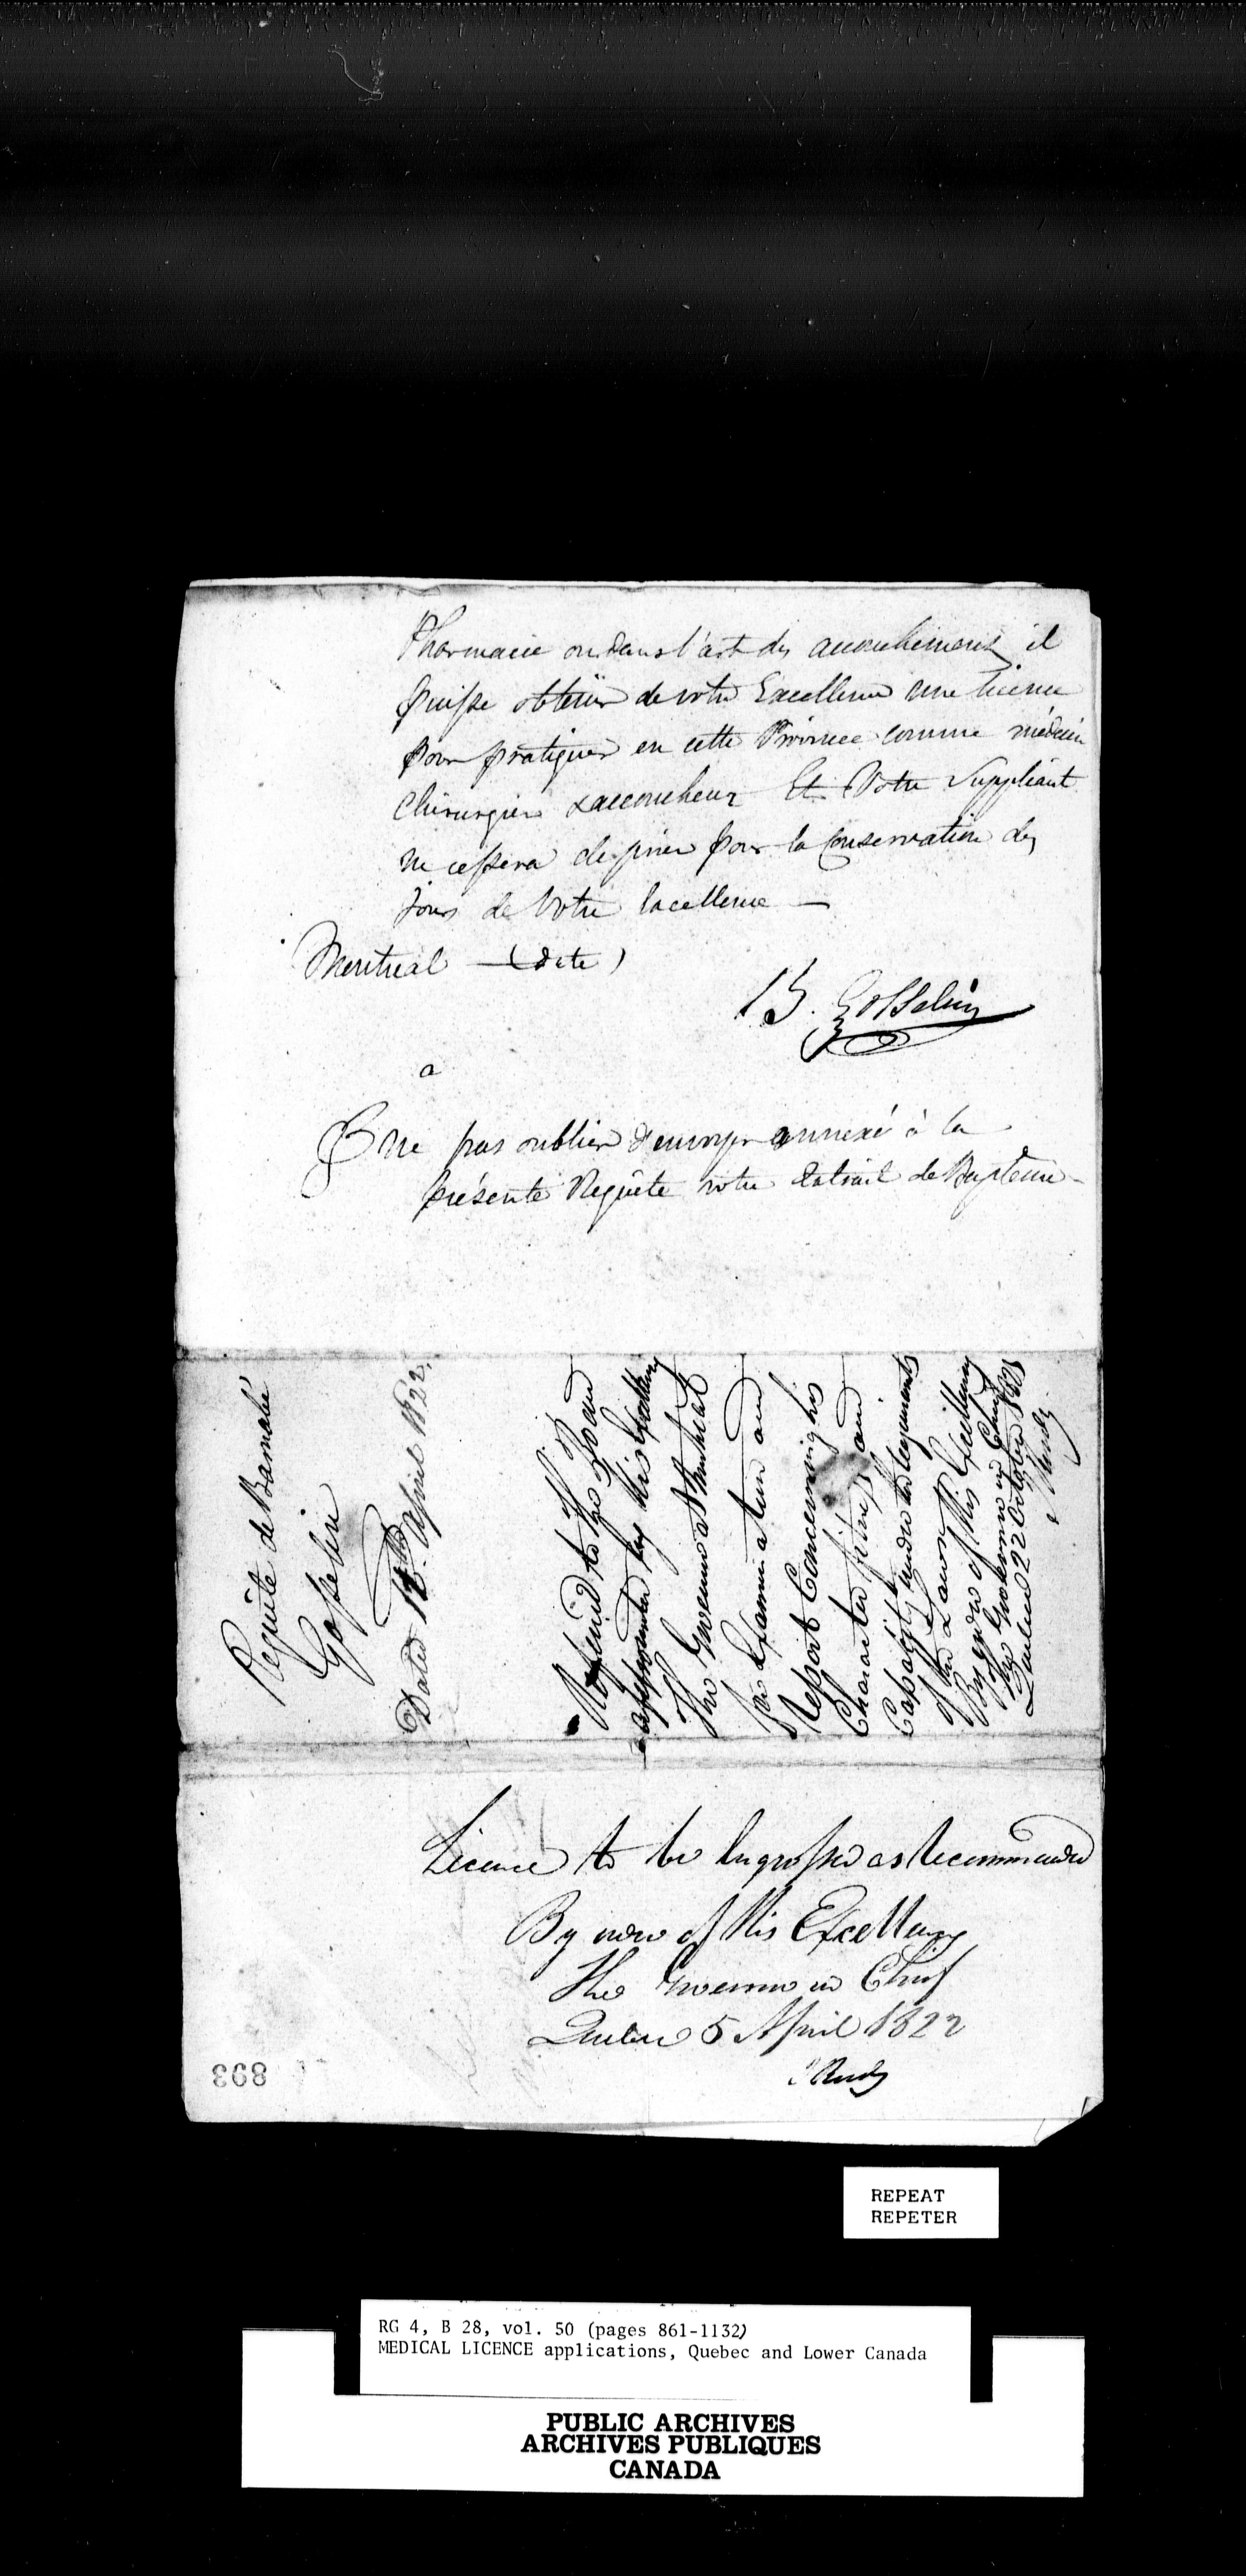 Pharmacie ou dans l'art des accouchemens il
puisse obtenir de votre Excellence une licence
pour pratiquer en cette Province comme médecin
Chirurgien & accoucheur Et Votre Suppliant
ne cessera de prier pour la Conservation des
jours de Votre Excellence —
Montreal — (date)
B. Gosselin
a
ne pas oublier d'envoyer annexé à la
présente Requête votre Extrait de Baptême
Requête de Barnabé
Gosselin
Dated April 1822.
Referred to the Board
appointed by His Excellency
The Governor at Montreal
for Examination and
Report Concerning his
Character fitness and
Capacity under the requirements
of the Law
By order of His Excellency
The Governor in Chief
Quebec 22 October
Ready
Licence to be Ingrossed as Recommended
By order of His Excellency
The Governor in Chief
Quebec 5 April 1822
Ready
893
REPEAT
REPETER
RG 4, B 28, vol. 50 (pages 861-1132)
MEDICAL LICENCE applications, Quebec and Lower Canada
PUBLIC ARCHIVES
ARCHIVES PUBLIQUES
CANADA